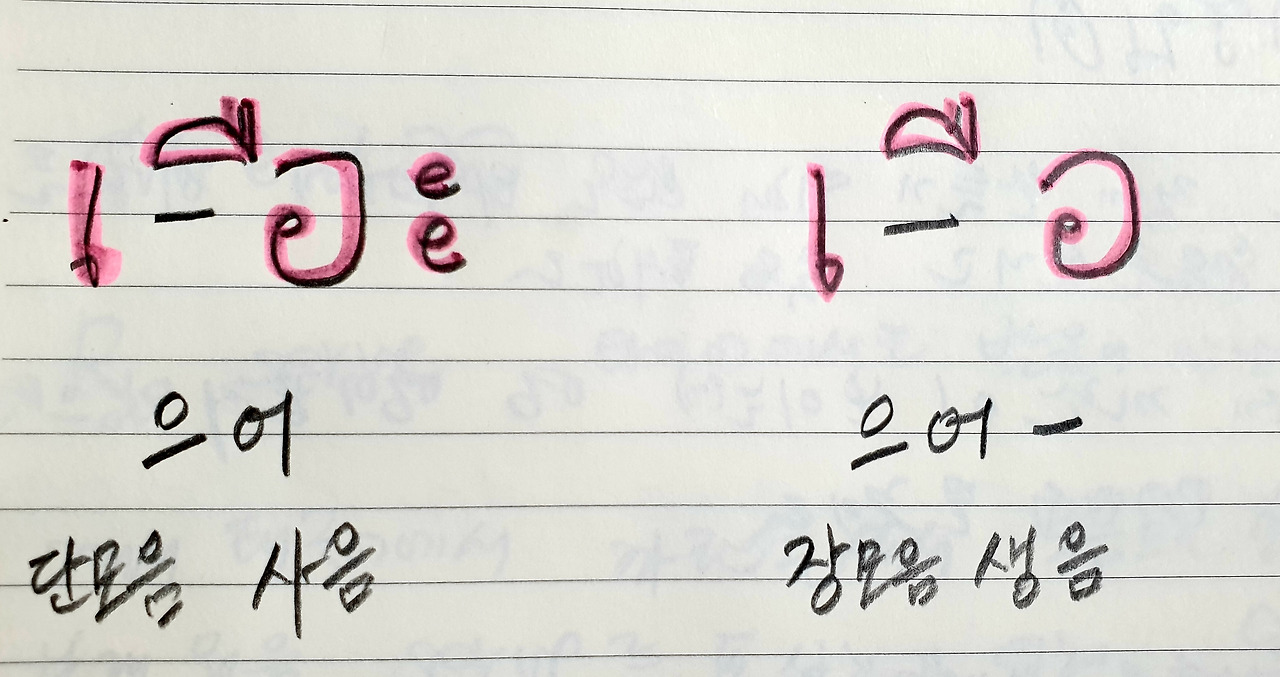 เ-ือะ เ-ือ
으어 으어-
단모음 사음 장모음 생음